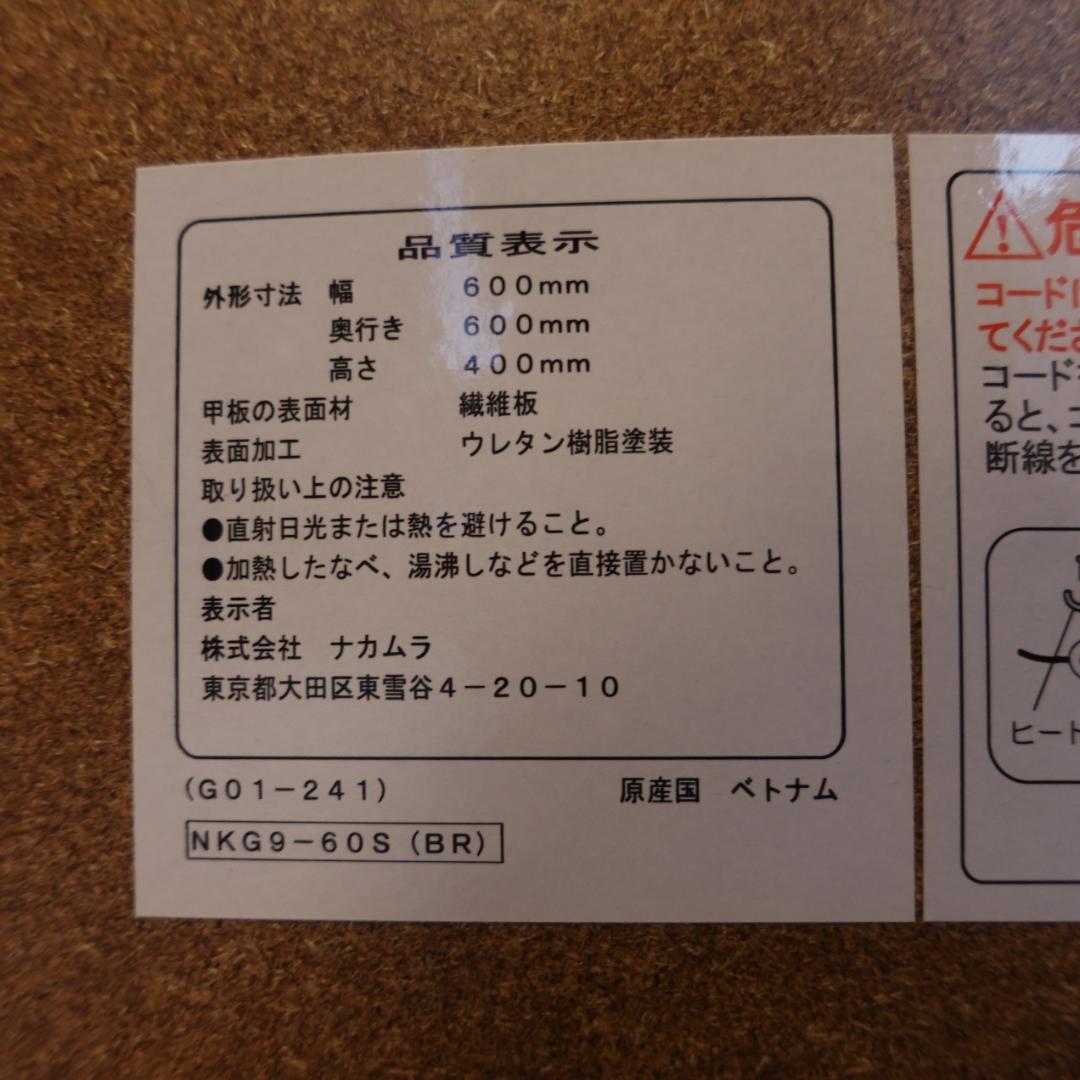 品質表示
外形寸法 幅 600mm
奥行き 600mm
高さ 400mm
甲板の表面材 繊維板
表面加工 ウレタン樹脂塗装
取り扱い上の注意
●直射日光または熱を避けること。
●加熱したなべ、湯沸しなどを直接置かないこと。
表示者
株式会社 ナカムラ
東京都大田区東雪谷4-20-10
(G01-241) 原産国 ベトナム
NKG9-60S(BR)
危
コード
てくださ
コード
ると、コ
断線を
ヒート